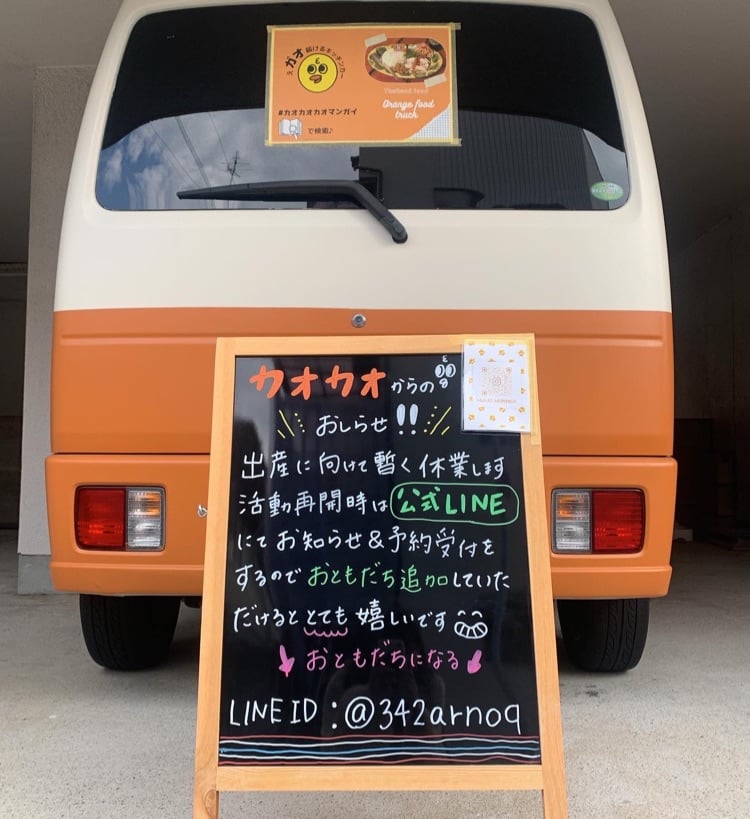 ガオ届けるキッチンカー
#カオカオカオマンガイ
で検索♪
Thailand food
Orange food
truck
カオカオからの
おしらせ!!
出産に向けて暫く休業します
活動再開時は公式LINE
にてお知らせ&予約受付を
するのでおともだち追加していた
だけるととても嬉しいです
おともだちになる
LINE ID:@342arnoq